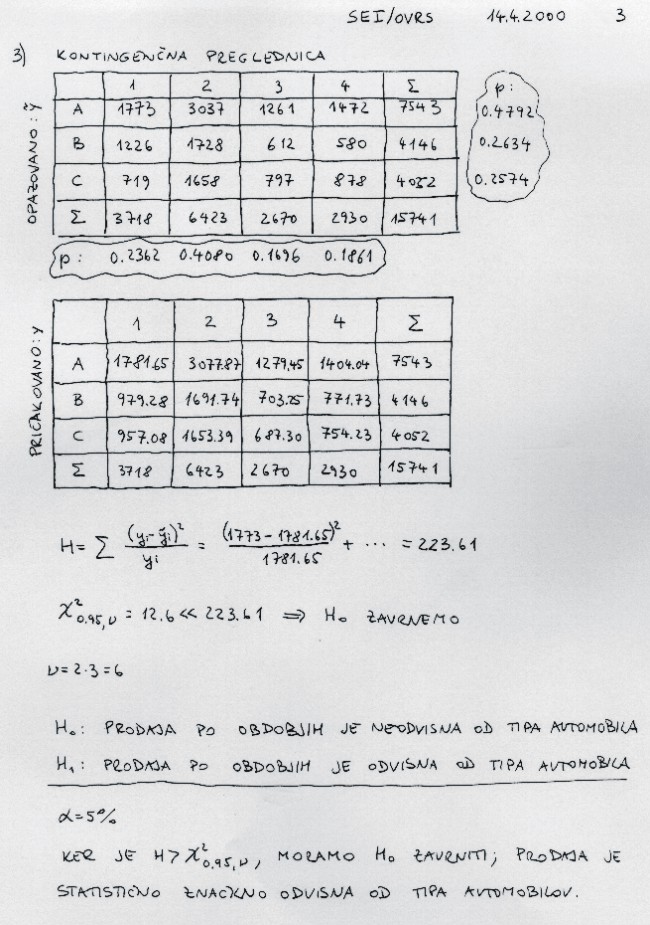 SEI/OVRS 14.4.2000 3
3) KONTINGENČNA PREGLEDNICA
OPAZOVANO: ỹ
1 2 3 4 Σ
A 1773 3037 1261 1472 7543
B 1226 1728 612 580 4146
C 719 1658 797 878 4052
Σ 3718 6423 2670 2930 15741
p:
0.4792
0.2634
0.2574
p: 0.2362 0.4080 0.1696 0.1861
PRIČAKOVANO: y
1 2 3 4 Σ
A 1781.65 3077.87 1279.45 1404.04 7543
B 979.28 1691.74 703.25 771.73 4146
C 957.08 1653.39 687.30 754.23 4052
Σ 3718 6423 2670 2930 15741
H = Σ (yi - ỹi)² / yi = (1773 - 1781.65)² / 1781.65 + ... = 223.61
χ²0.95,ν = 12.6 << 223.61 ⇒ H₀ ZAVRNEMO
ν = 2·3 = 6
H₀: PRODAJA PO OBDOBJIH JE NEODVISNA OD TIPA AVTOMOBILA
H₁: PRODAJA PO OBDOBJIH JE ODVISNA OD TIPA AVTOMOBILA
α = 5%
KER JE H > χ²0.95,ν, MORAMO H₀ ZAVRNITI; PRODAJA JE
STATISTIČNO ZNAČILNO ODVISNA OD TIPA AVTOMOBILOV.